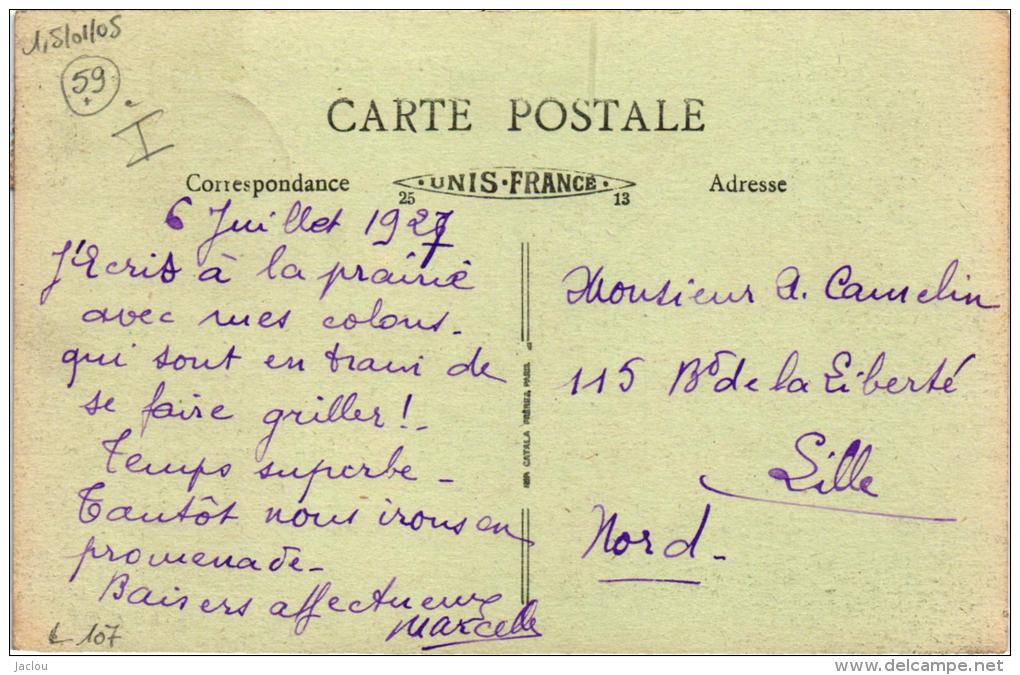 1,5/01/05
59
I
CARTE POSTALE
Correspondance
UNIS-FRANCE
25
13
Adresse
6 Juillet 1927
J'Ecris à la prairie
avec mes colons.
qui sont en train de
se faire griller!_
Temps superbe_
Tantôt nous irons en
promenade_
Baisers affectueux
Marcelle
CATALA FRÈRES, PARIS
Monsieur A. Camelin
115 Bd de la Liberté
Lille
Nord_
107
Jaclou
www.delcampe.net